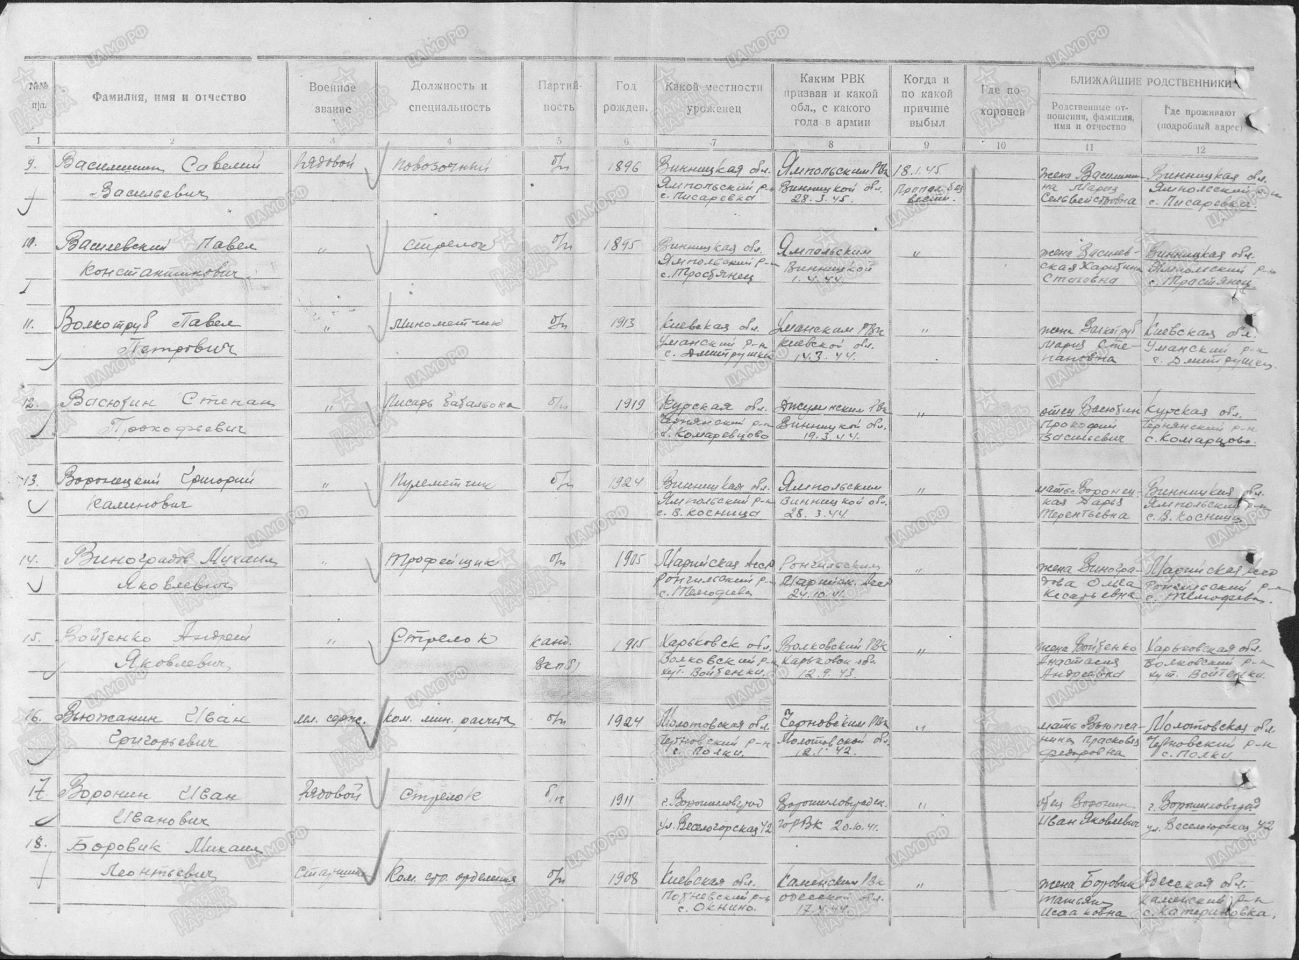 №№ п/п.
Фамилия, имя и отчество
Военное звание
Должность и специальность
Партийность
Год рожден.
Какой местности уроженец
Каким РВК призван и какой обл., с какого года в армии
Когда и по какой причине выбыл
Где похоронен
БЛИЖАЙШИЕ РОДСТВЕННИКИ
Родственные отношения, фамилия, имя и отчество
Где проживают (подробный адрес)
1 2 3 4 5 6 7 8 9 10 11 12
9. Савелий рядовой Повозочный б/п 1896 Винницкая обл. Ямпольским РВК 18.1.45 жена Винницкая обл.
Васильевич Ямпольский р-н Винницкой обл. Пропал без Мария Ямпольский р-н
с. Писаревка 28.3.45. вести. с. Писаревка
10. Василевский Павел " Стрелок б/п 1895 Винницкая обл. Ямпольским " жена Василев- Винницкая обл.
Константинович Ямпольский р-н Винницкой ская Ямпольский р-н
с. Тростянец 1.4.44. с. Тростянец
11. Волкотруб Павел " Минометчик б/п 1913 Киевская обл. Уманским РВК " жена Волкотруб Киевская обл.
Петрович Уманский р-н Киевской обл. Мария Сте Уманский р-н
с. Дмитрушки 14.3.44. пановна с. Дмитрушки.
12. Васютин Степан " Писарь батальона б/п 1919 Курская обл. РВК " отец Васютин Курская обл.
Прокофьевич Чернянский р-н Винницкой обл. Прокофий Чернянский р-н
19.3.44. Васильевич
13. Воронецкий Григорий " Пулеметчик б/п 1924 Винницкая обл. Ямпольским " мать Воронец- Винницкая обл.
Калинович Ямпольский р-н Винницкой обл. кая Дарья Ямпольский р-н
с. В. Косница 28.3.44 Терентьевна с. В. Косница
14. Виноградов Михаил " Трофейщик б/п 1905 Марийская Ронгинским " жена Виногра- Марийская
Яковлевич Ронгинский р-н дова Ольга
24.10.41.
15. Войтенко Андрей " Стрелок канд. 1915 Харьковск обл. Волковский РВК " жена Войтенко Харьковская обл.
Яковлевич Волковский р-н Харьковск обл. Анастасия Волковский р-н
хут. Войтенки. 12.9.43. Андреевна хут. Войтенки.
16. Вьюжанин Иван мл. серж. Ком. мин. расчета б/п 1924 Молотовская обл. Черновским РВК " мать Вьюжа- Молотовская обл.
Григорьевич Черновский р-н Молотовской обл. нина Прасковья Черновский р-н
с. Полки. Федоровна с. Полки
17 Воронин Иван рядовой Стрелок б/п 1911 г. Ворошиловград " отец Воронин г. Ворошиловград
Иванович ул. Веселогорская 42 ГорВК 20.10.41. Иван Яковлевич ул. Веселогорская 42
18. Боровик Михаил
Леонтьевич Старшина Ком. стр. отделения б/п 1908 Киевская обл. Каменским РВК " жена Боровик Одесская обл.
Одесской обл. Татьяна Каменский р-н
Исааковна с. Катериновка.